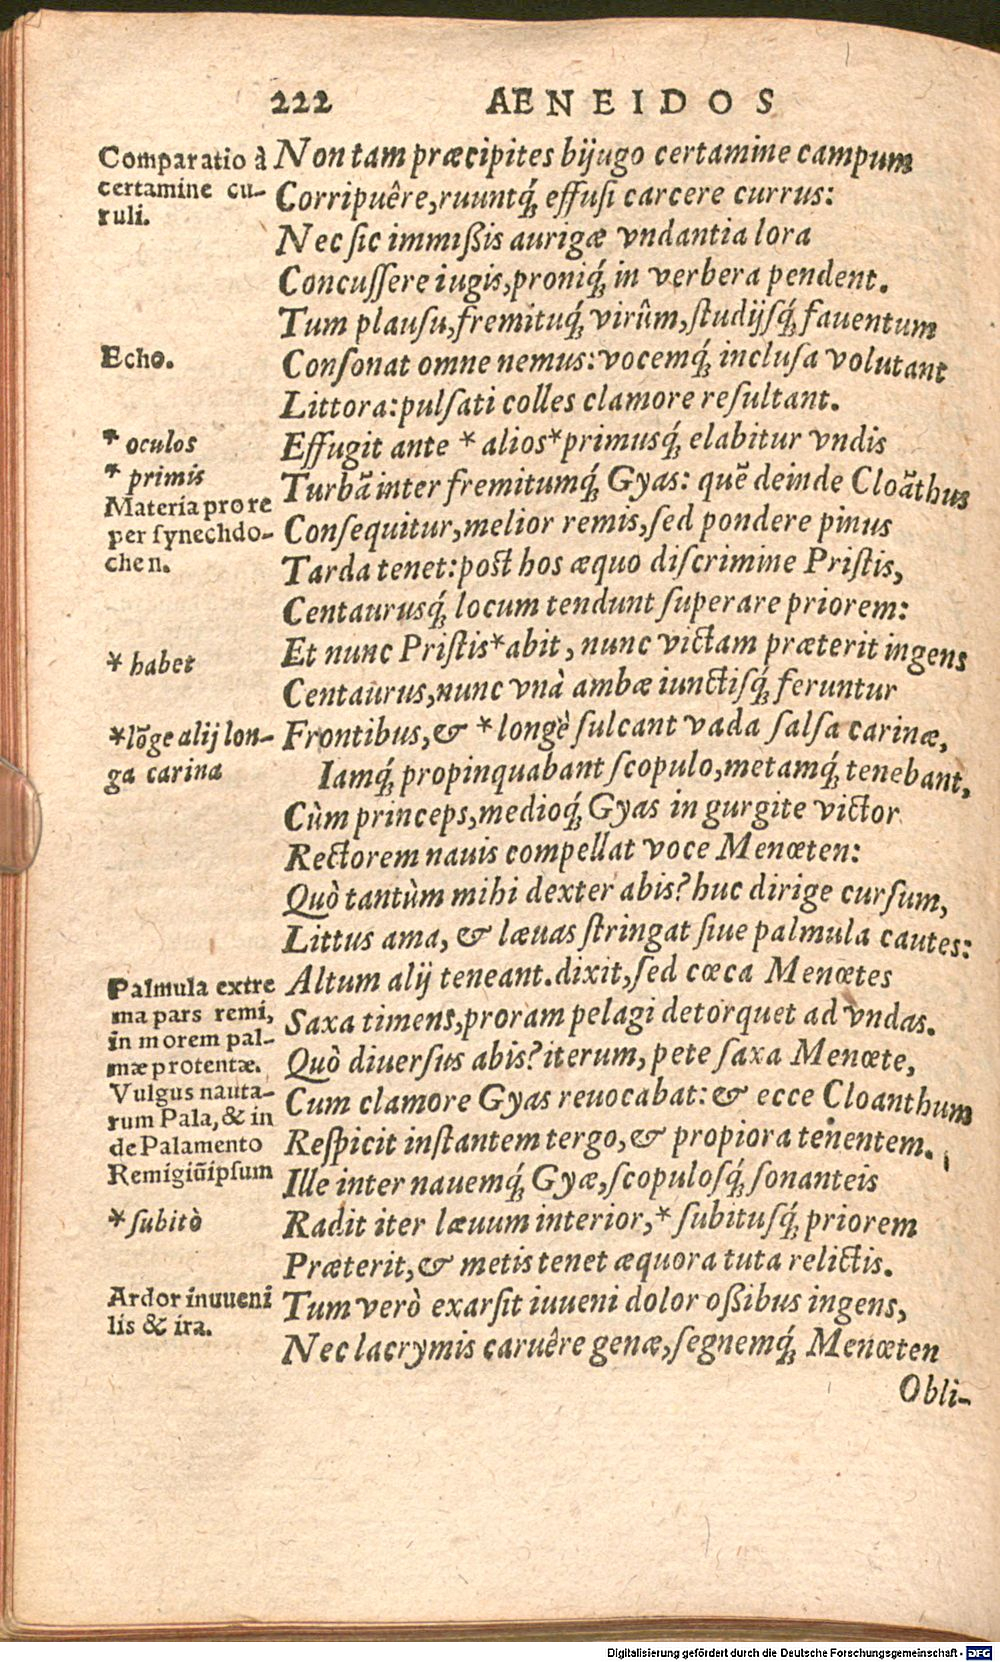 222 AENEIDOS
Comparatio à
certamine cu-
ruli.
Non tam præcipites bijugo certamine campum
Corripuêre, ruuntq́; effuſi carcere currus:
Nec ſic immißis aurigæ vndantia lora
Concuſſere iugis, proniq́; in verbera pendent.
Tum plauſu, fremituq́; virûm, ſtudijſq́; fauentum
Echo.
Conſonat omne nemus: vocemq́; incluſa volutant
Littora: pulſati colles clamore reſultant.
* oculos
Effugit ante * alios * primusq́; elabitur vndis
* primis
Turbā inter fremitumq́; Gyas: quē deinde Cloāthus
Materia prore
per ſynechdo-
chen.
Conſequitur, melior remis, ſed pondere pinus
Tarda tenet: poſt hos æquo diſcrimine Priſtis,
Centaurusq́; locum tendunt ſuperare priorem:
* habet
Et nunc Priſtis * abit, nunc victam præterit ingens
Centaurus, nunc vnà ambæ iunctiſq́; feruntur
*lōge alij lon-
ga carina
Frontibus, & * longè ſulcant vada ſalſa carinæ,
Iamq́; propinquabant ſcopulo, metamq́; tenebant,
Cùm princeps, medioq́; Gyas in gurgite victor
Rectorem nauis compellat voce Menœten:
Quò tantùm mihi dexter abis? huc dirige curſum,
Littus ama, & læuas ſtringat ſiue palmula cautes:
Palmula extre
ma pars remi,
in morem pal-
mæ protentæ.
Vulgus nauta-
rum Pala, & in
de Palamento
Remigiū ipſum
Altum alij teneant. dixit, ſed cœca Menœtes
Saxa timens, proram pelagi detorquet ad vndas.
Quò diuerſus abis? iterum, pete ſaxa Menœte,
Cum clamore Gyas reuocabat: & ecce Cloanthum
Reſpicit inſtantem tergo, & propiora tenentem.
Ille inter nauemq́; Gyæ, ſcopuloſq́; ſonanteis
* ſubitò
Radit iter læuum interior, * ſubitusq́; priorem
Præterit, & metis tenet æquora tuta relictis.
Ardor in uueni
lis & ira.
Tum verò exarſit iuueni dolor oßibus ingens,
Nec lacrymis caruêre genæ, ſegnemq́; Menœten
Obli-
Digitalisierung gefördert durch die Deutsche Forschungsgemeinschaft - DFG